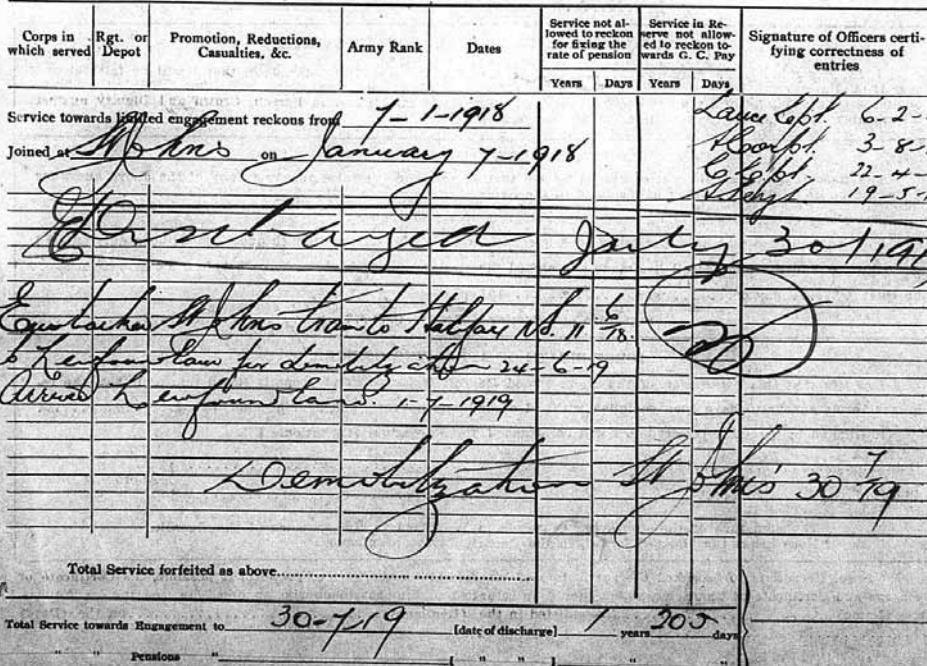 Corps in which served
Rgt. or Depot
Promotion, Reductions, Casualties, &c.
Army Rank
Dates
Service not allowed to reckon for fixing the rate of pension
Service in Reserve not allowed to reckon towards G. C. Pay
Signature of Officers certifying correctness of entries
Years Days Years Days
Service towards limited engagement reckons from 7-1-1918
Lance Cpl. 6-2-
Joined at St Johns on January 7-1918
3-8-
22-4-
19-5-
Discharged July 30/191
St Johns to Halifax NS. 11 6/18.
Newfoundland for demobilization 24-6-19
Arrived Newfoundland. 1-7-1919
Demobilization St John's 30 7/19
Total Service forfeited as above
Total Service towards Engagement to 30-7-19 [date of discharge] 1 years 205 days
" " Pensions " [ " " ] " "